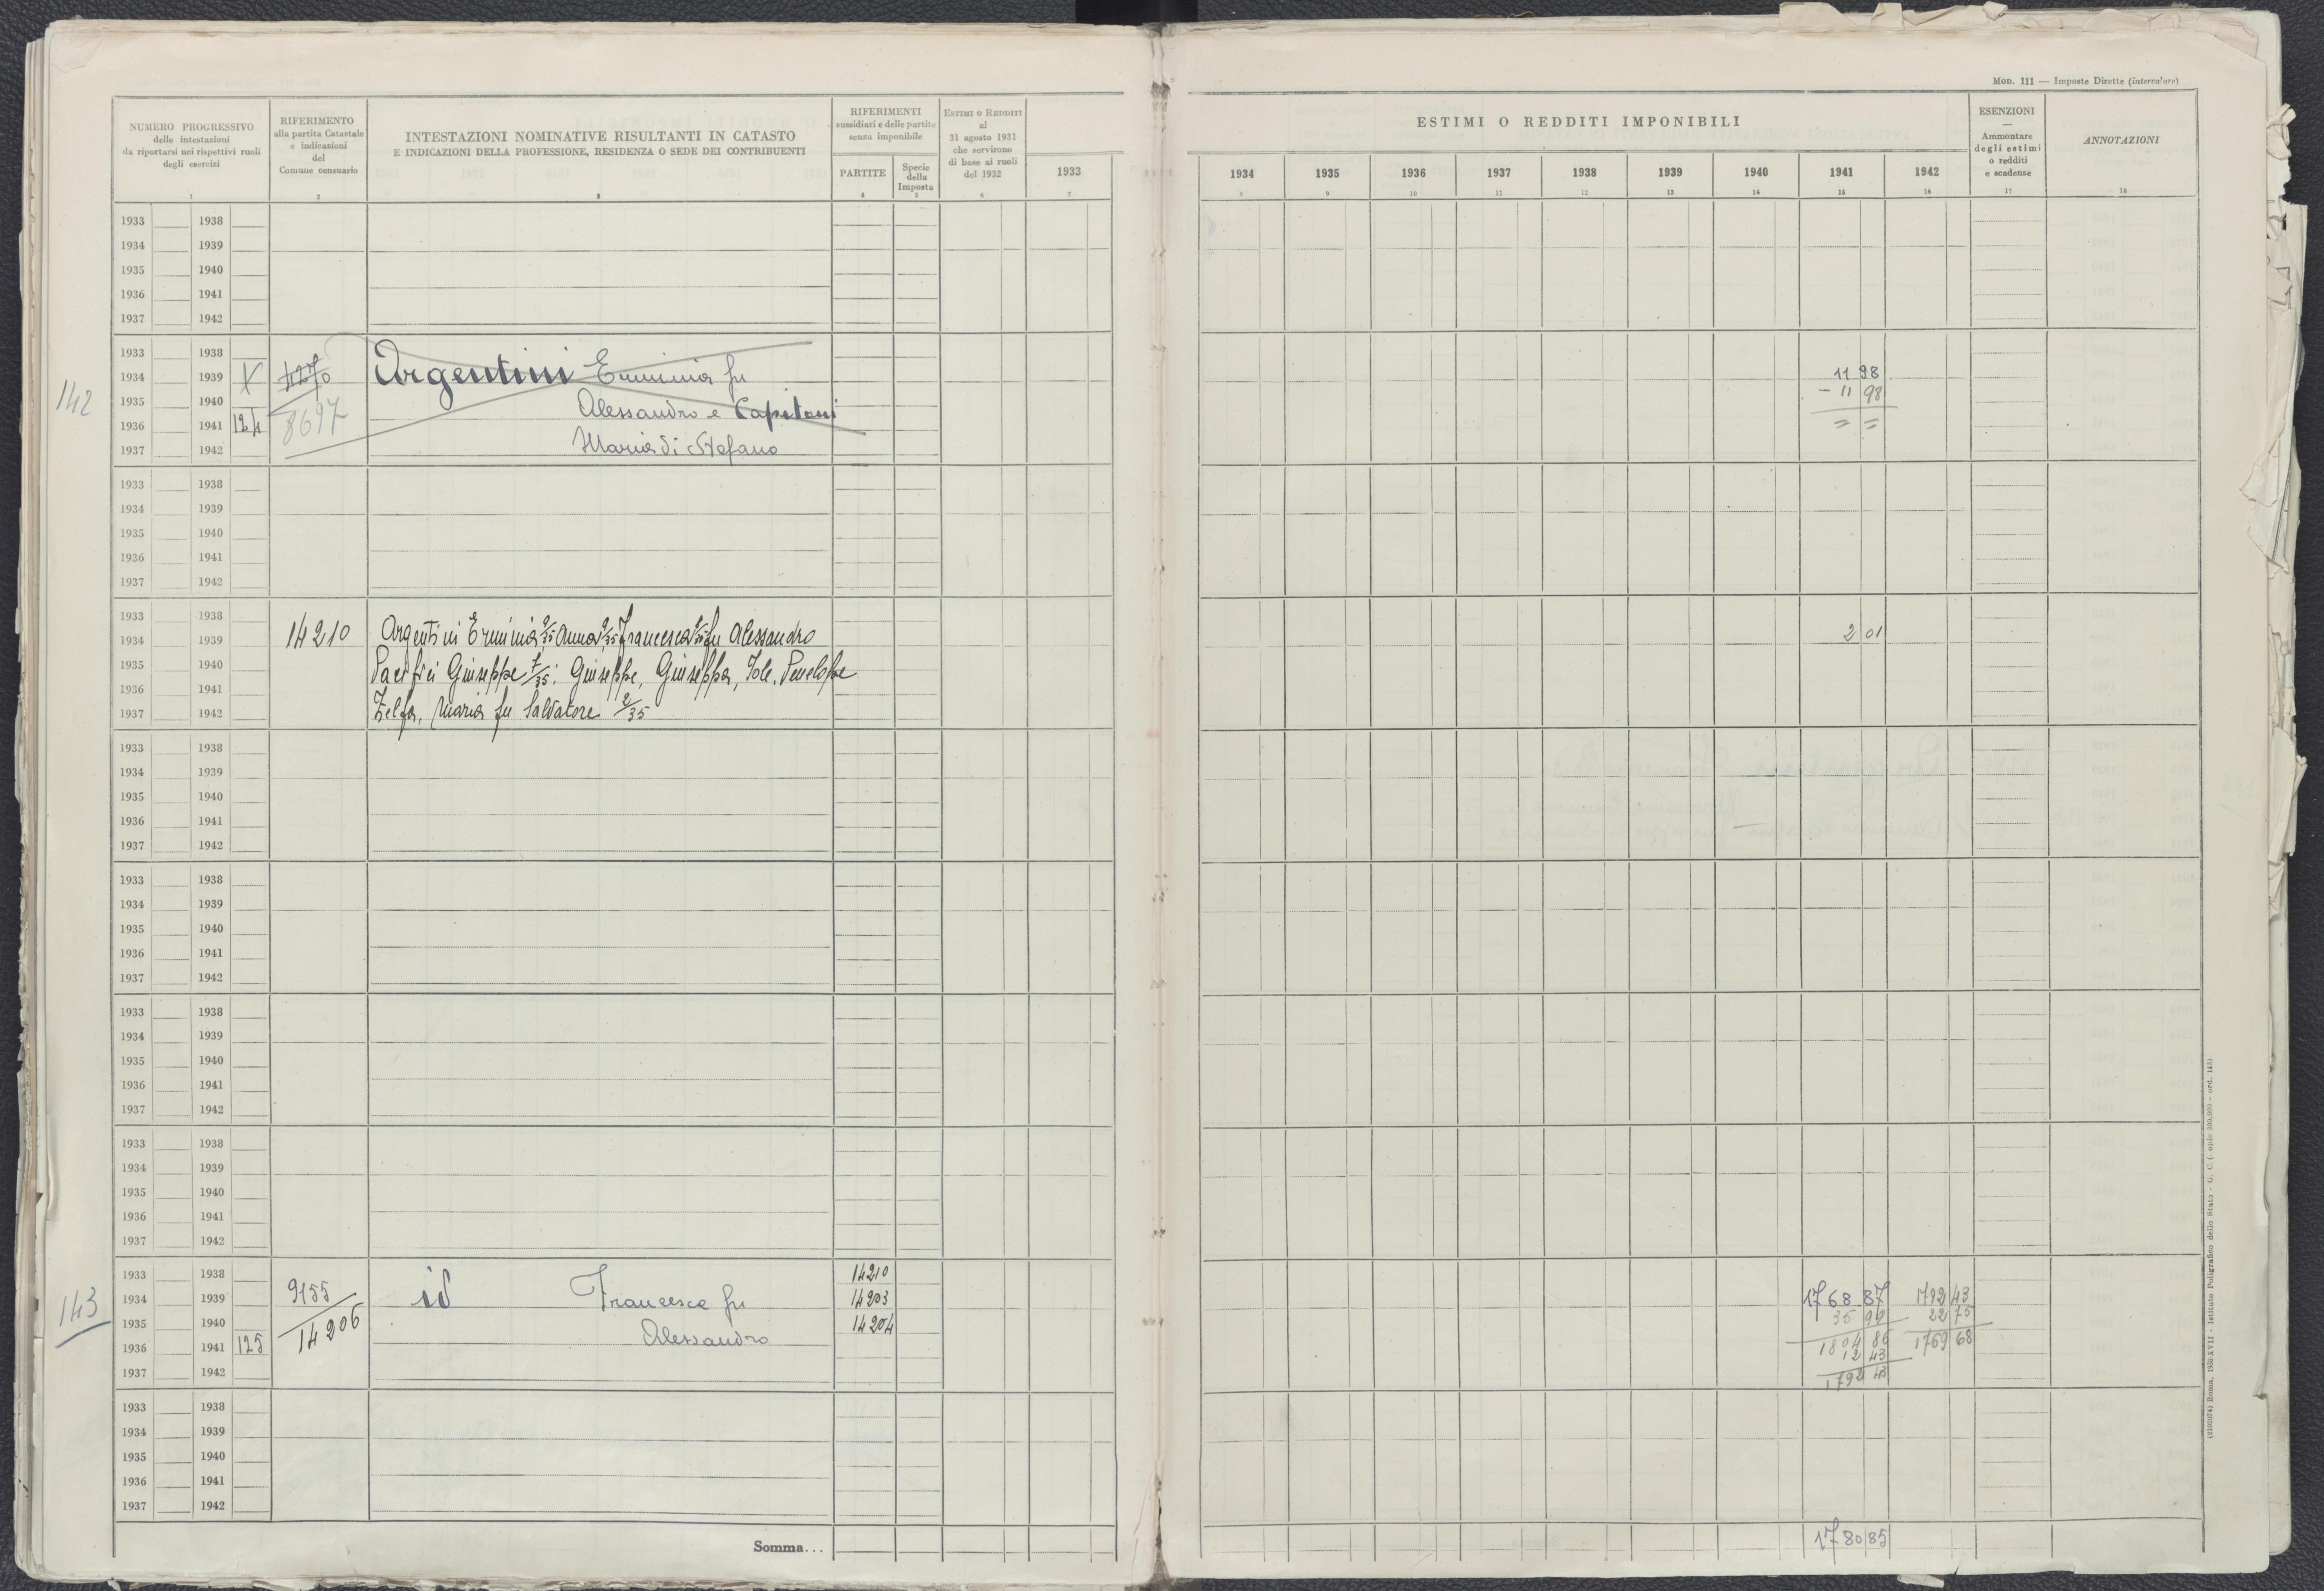 MOD. 111 — Imposte Dirette (intercalare)
NUMERO PROGRESSIVO
delle intestazioni
da riportarsi nei rispettivi ruoli
degli esercizi
1
RIFERIMENTO
alla partita Catastale
e indicazioni
del
Comune censuario
2
INTESTAZIONI NOMINATIVE RISULTANTI IN CATASTO
E INDICAZIONI DELLA PROFESSIONE, RESIDENZA O SEDE DEI CONTRIBUENTI
3
RIFERIMENTI
sussidiari e delle partite
senza imponibile
PARTITE
4
Specie
della
Imposta
5
ESTIMI O REDDITI
al
31 agosto 1931
che servirono
di base ai ruoli
del 1932
6
1933
7
ESTIMI O REDDITI IMPONIBILI
1934 1935 1936 1937 1938 1939 1940 1941 1942
8 9 10 11 12 13 14 15 16
ESENZIONI
—
Ammontare
degli estimi
o redditi
e scadenze
17
ANNOTAZIONI
18
1933 1938
1934 1939
1935 1940
1936 1941
1937 1942
142
1933 1938
1934 1939 X 4270 Argentini Erminia fu 11 98
1935 1940 8697 Alessandro e Capitani - 11 98
1936 1941 124 = =
1937 1942 Maria di Stefano
1933 1938
1934 1939
1935 1940
1936 1941
1937 1942
1933 1938
1934 1939 14210 Argentini Erminia 2/35 Anna 2/35 Francesca 2/35 fu Alessandro 2 01
1935 1940 Pacifici Giuseppe 7/35: Giuseppe, Giuseppa, Iole, Penelope
1936 1941
1937 1942 Zelfa, Maria fu Salvatore 2/35
1933 1938
1934 1939
1935 1940
1936 1941
1937 1942
1933 1938
1934 1939
1935 1940
1936 1941
1937 1942
1933 1938
1934 1939
1935 1940
1936 1941
1937 1942
1933 1938
1934 1939
1935 1940
1936 1941
1937 1942
143
1933 1938 14210
1934 1939 9155 id Francesca fu 14203 1768 87 1792 43
1935 1940 14206 14204 35 99 22 75
1936 1941 125 Alessandro 1804 86 1769 68
12 43
1937 1942 1792 43
1933 1938
1934 1939
1935 1940
1936 1941
1937 1942
Somma... 1780 85